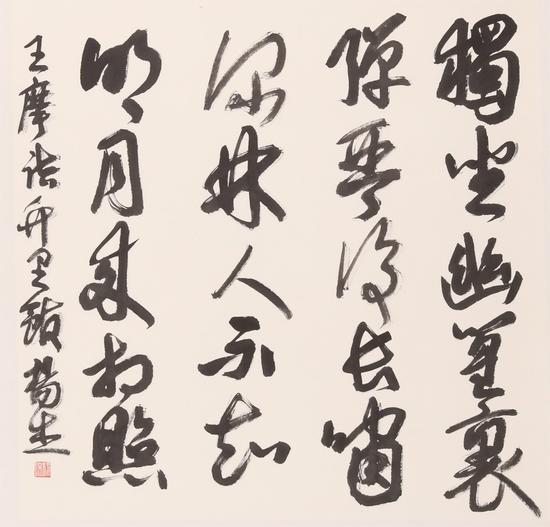 獨坐幽篁裏
彈琴復長嘯
深林人不知
明月來相照
王摩詰竹里館 楊